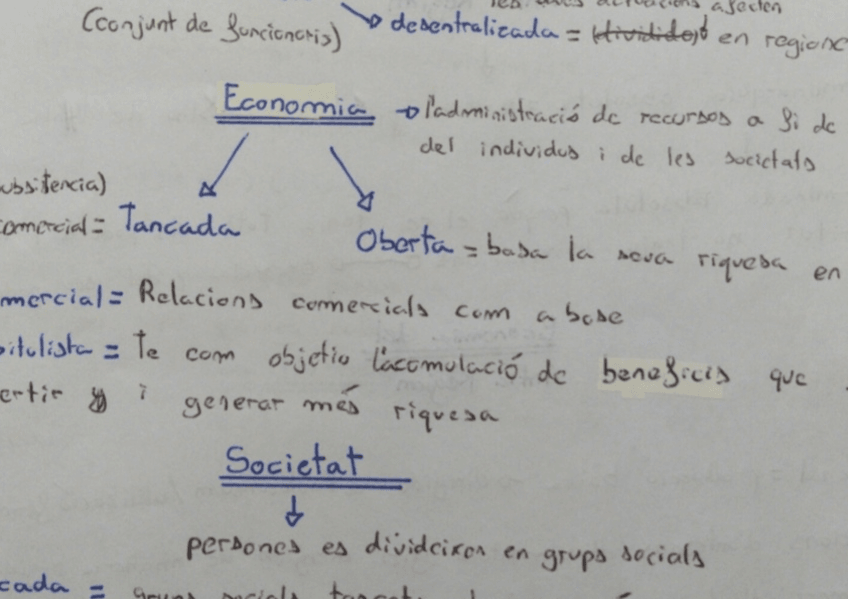 les seves actuacions afecten
(conjunt de funcionaris)
desentralizada = (dividido) en regions
Economia → l'administració de recursos a fi de
del individus i de les societats
subsitencia)
comercial = Tancada
Oberta = basa la seva riquesa en
mercial = Relacions comercials com a base
pitalista = Te com objetiu l'acomulació de beneficis que
ertir y i generar més riquesa
Societat
persones es divideixen en grups socials
cada = grups socials tancats